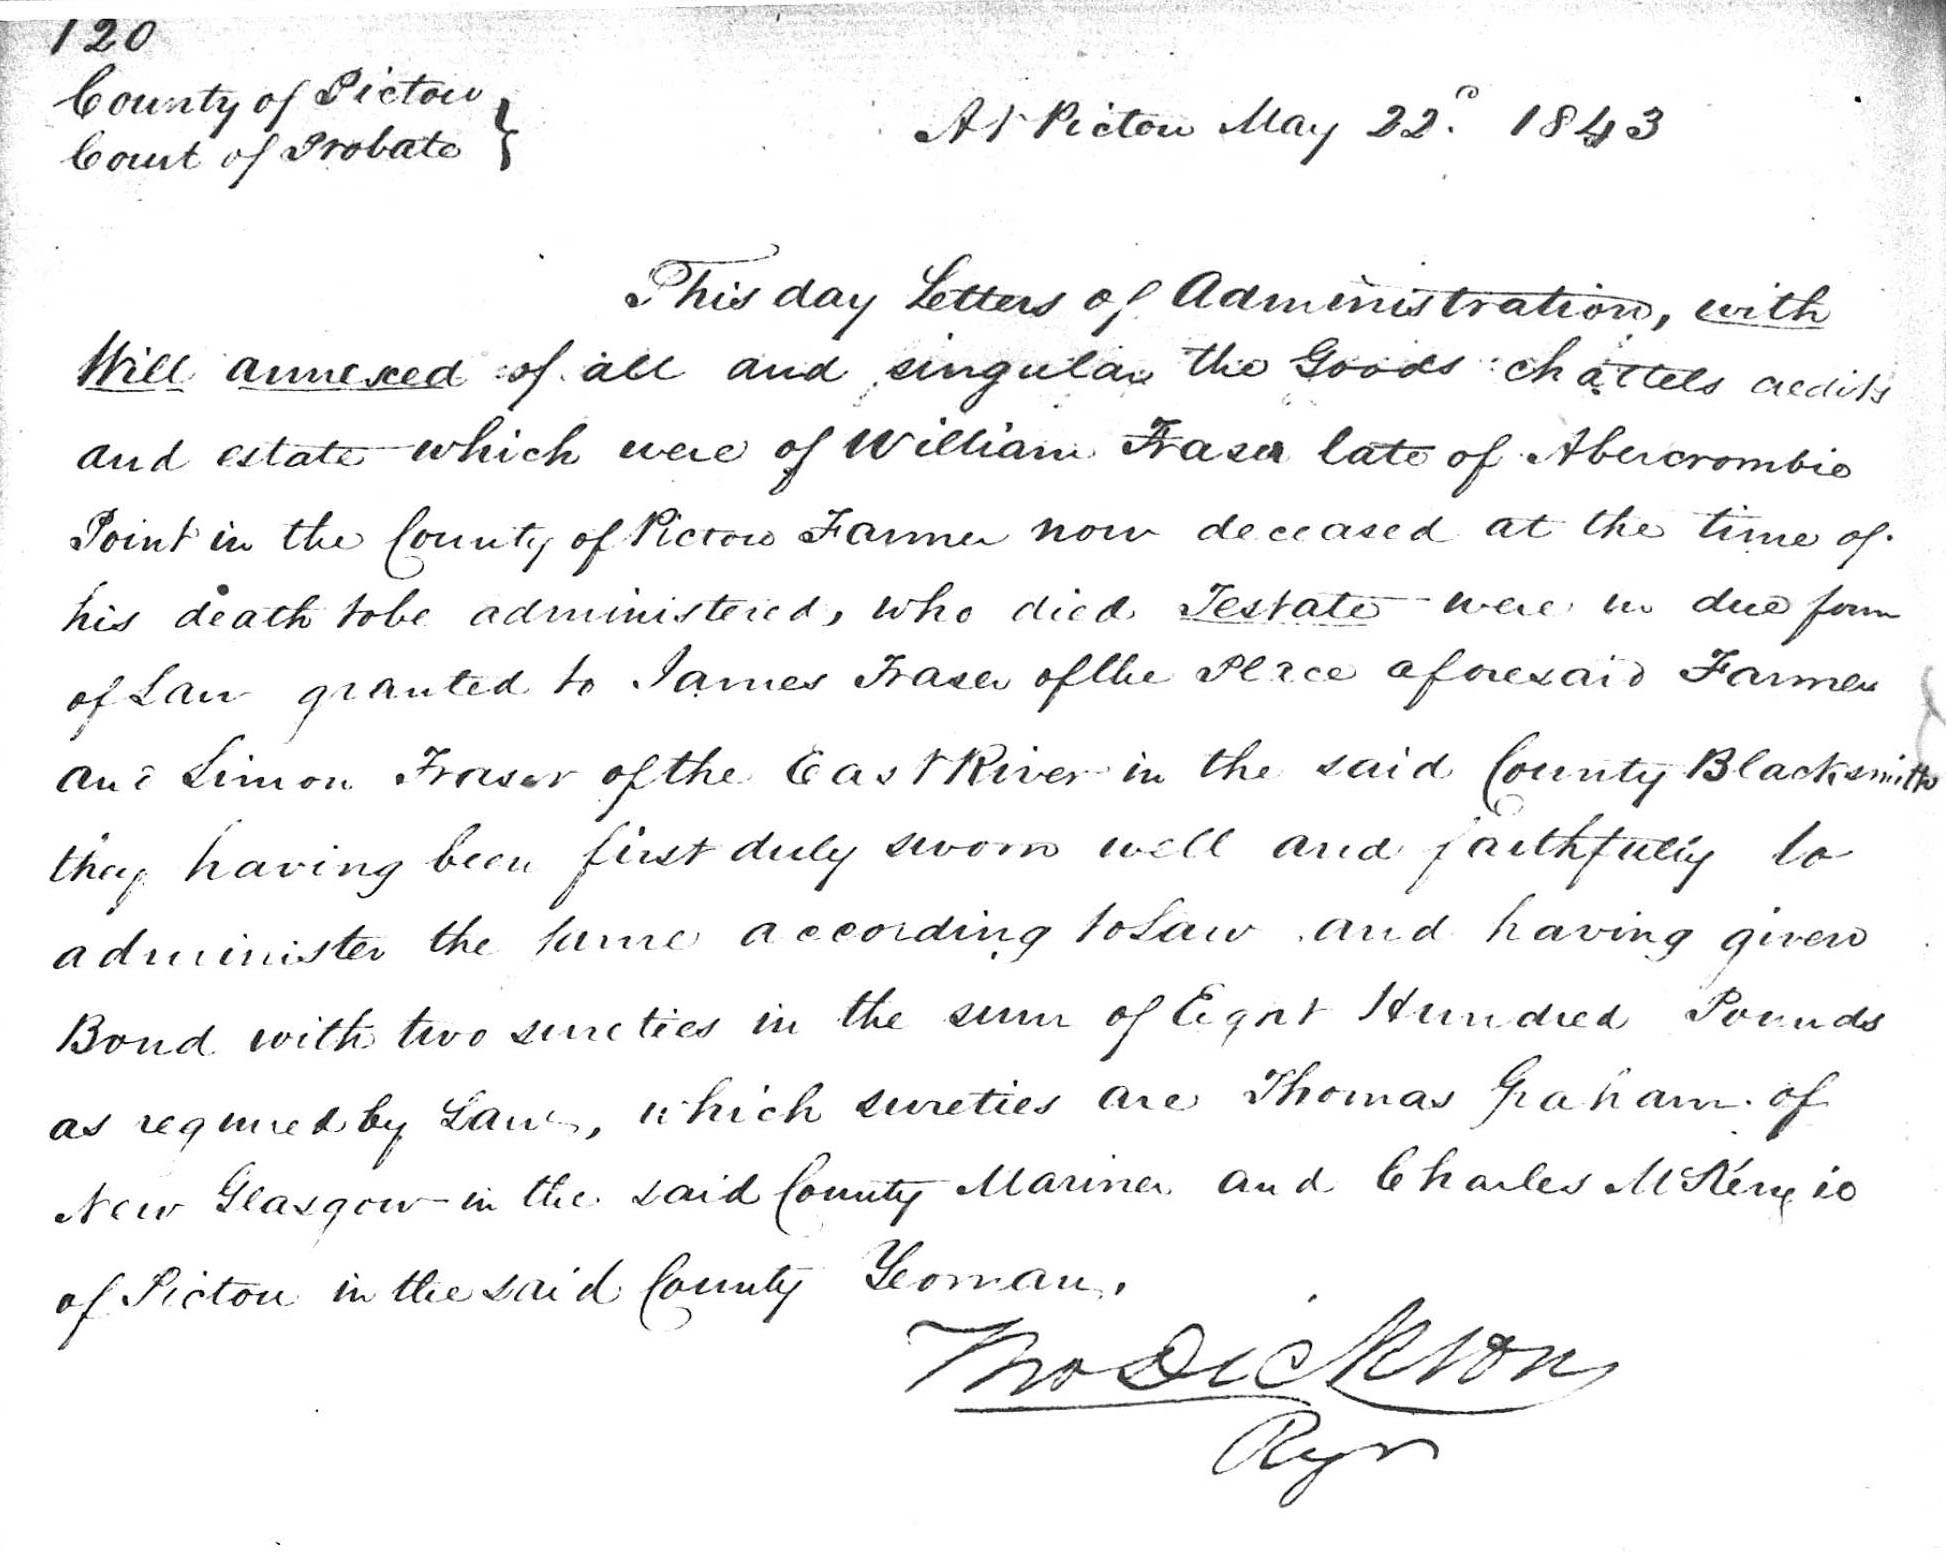 120
County of Pictou
Court of Probate
At Pictou May 22d. 1843
This day Letters of Administration, with
Will annexed of all and singular the Goods chattels credits
and estate which were of William Fraser late of Abercrombie
Point in the County of Pictou Farmer now deceased at the time of
his death to be administered, who died Testate were in due form
of Law granted to James Fraser of the Place aforesaid Farmer
and Simon Fraser of the East River in the said County Blacksmith
they having been first duly sworn well and faithfully to
administer the same according to Law and having given
Bond with two sureties in the sum of Eight Hundred Pounds
as required by Law, which sureties are Thomas Graham of
New Glasgow in the said County Mariner and Charles McKenzie
of Pictou in the said County Yeoman.
Tho Dickson
Regr